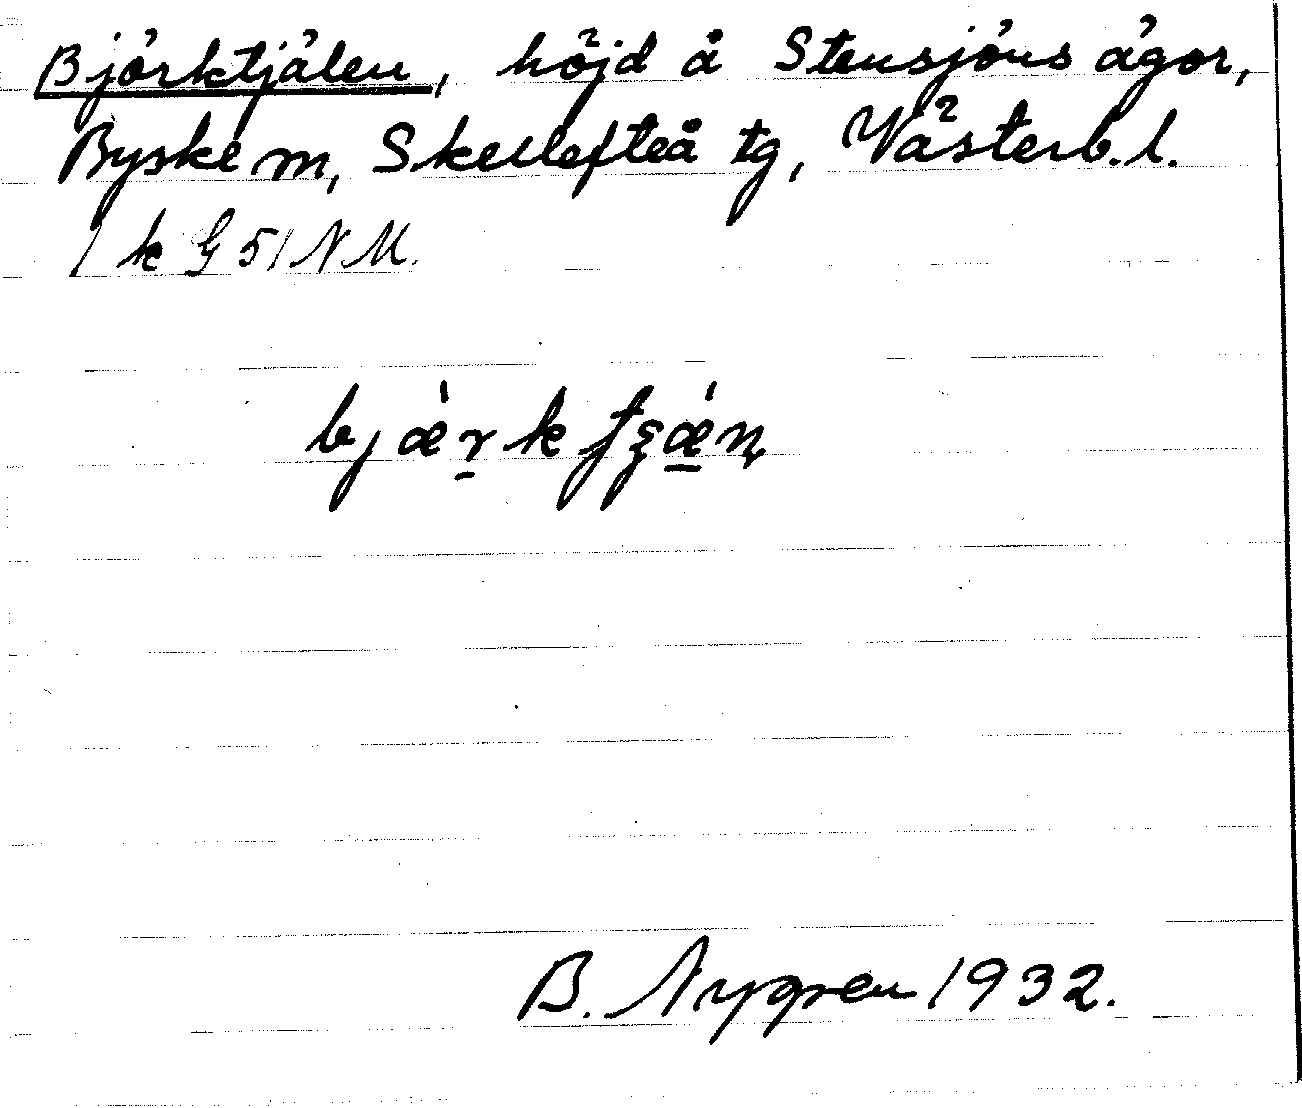 Björktjälen, höjd å Stensjöns ägor,
Byske m, Skellefteå tg, Västerb.l.
/ k G 51 N M.
B. Nygren 1932.